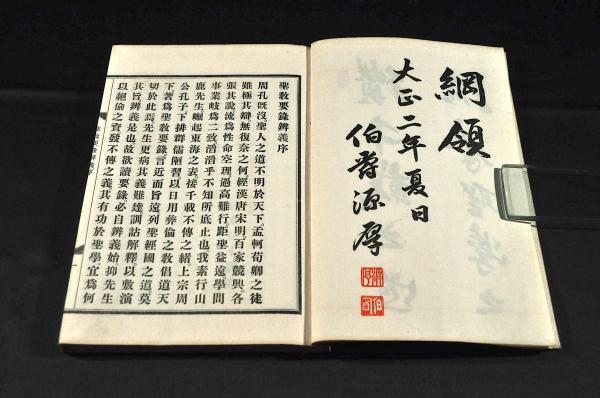 綱領
大正二年夏日
伯爵源厚
聖敎要錄辨義序
周孔既沒聖人之道不明於天下孟軻荀卿之徒
雖極其辯無復奈之何經漢唐宋明百家競興各
張其說流爲性命空理過高難行距聖益遠學問
事業岐爲二致滔滔乎不知所底止也我素行山
鹿先生崛起東海之表接千載不傳之緒上宗周
公孔子下排群儒陋習以日用彝倫之敎倡道天
下著爲要錄言近而旨遠列聖經國之道莫
切於此焉先生更病其義難達訓詁解釋以敷演
其旨辨義是也故欲讀要錄必自辨義始抑先生
以絕倫之資發不傳之義其有功於聖學宜爲何